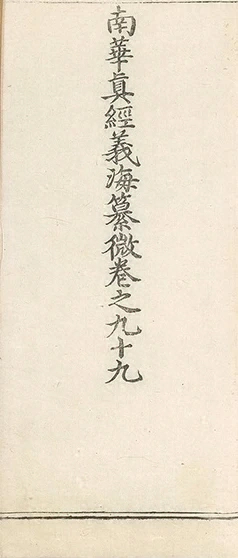 南華真經義海纂微卷之九十九